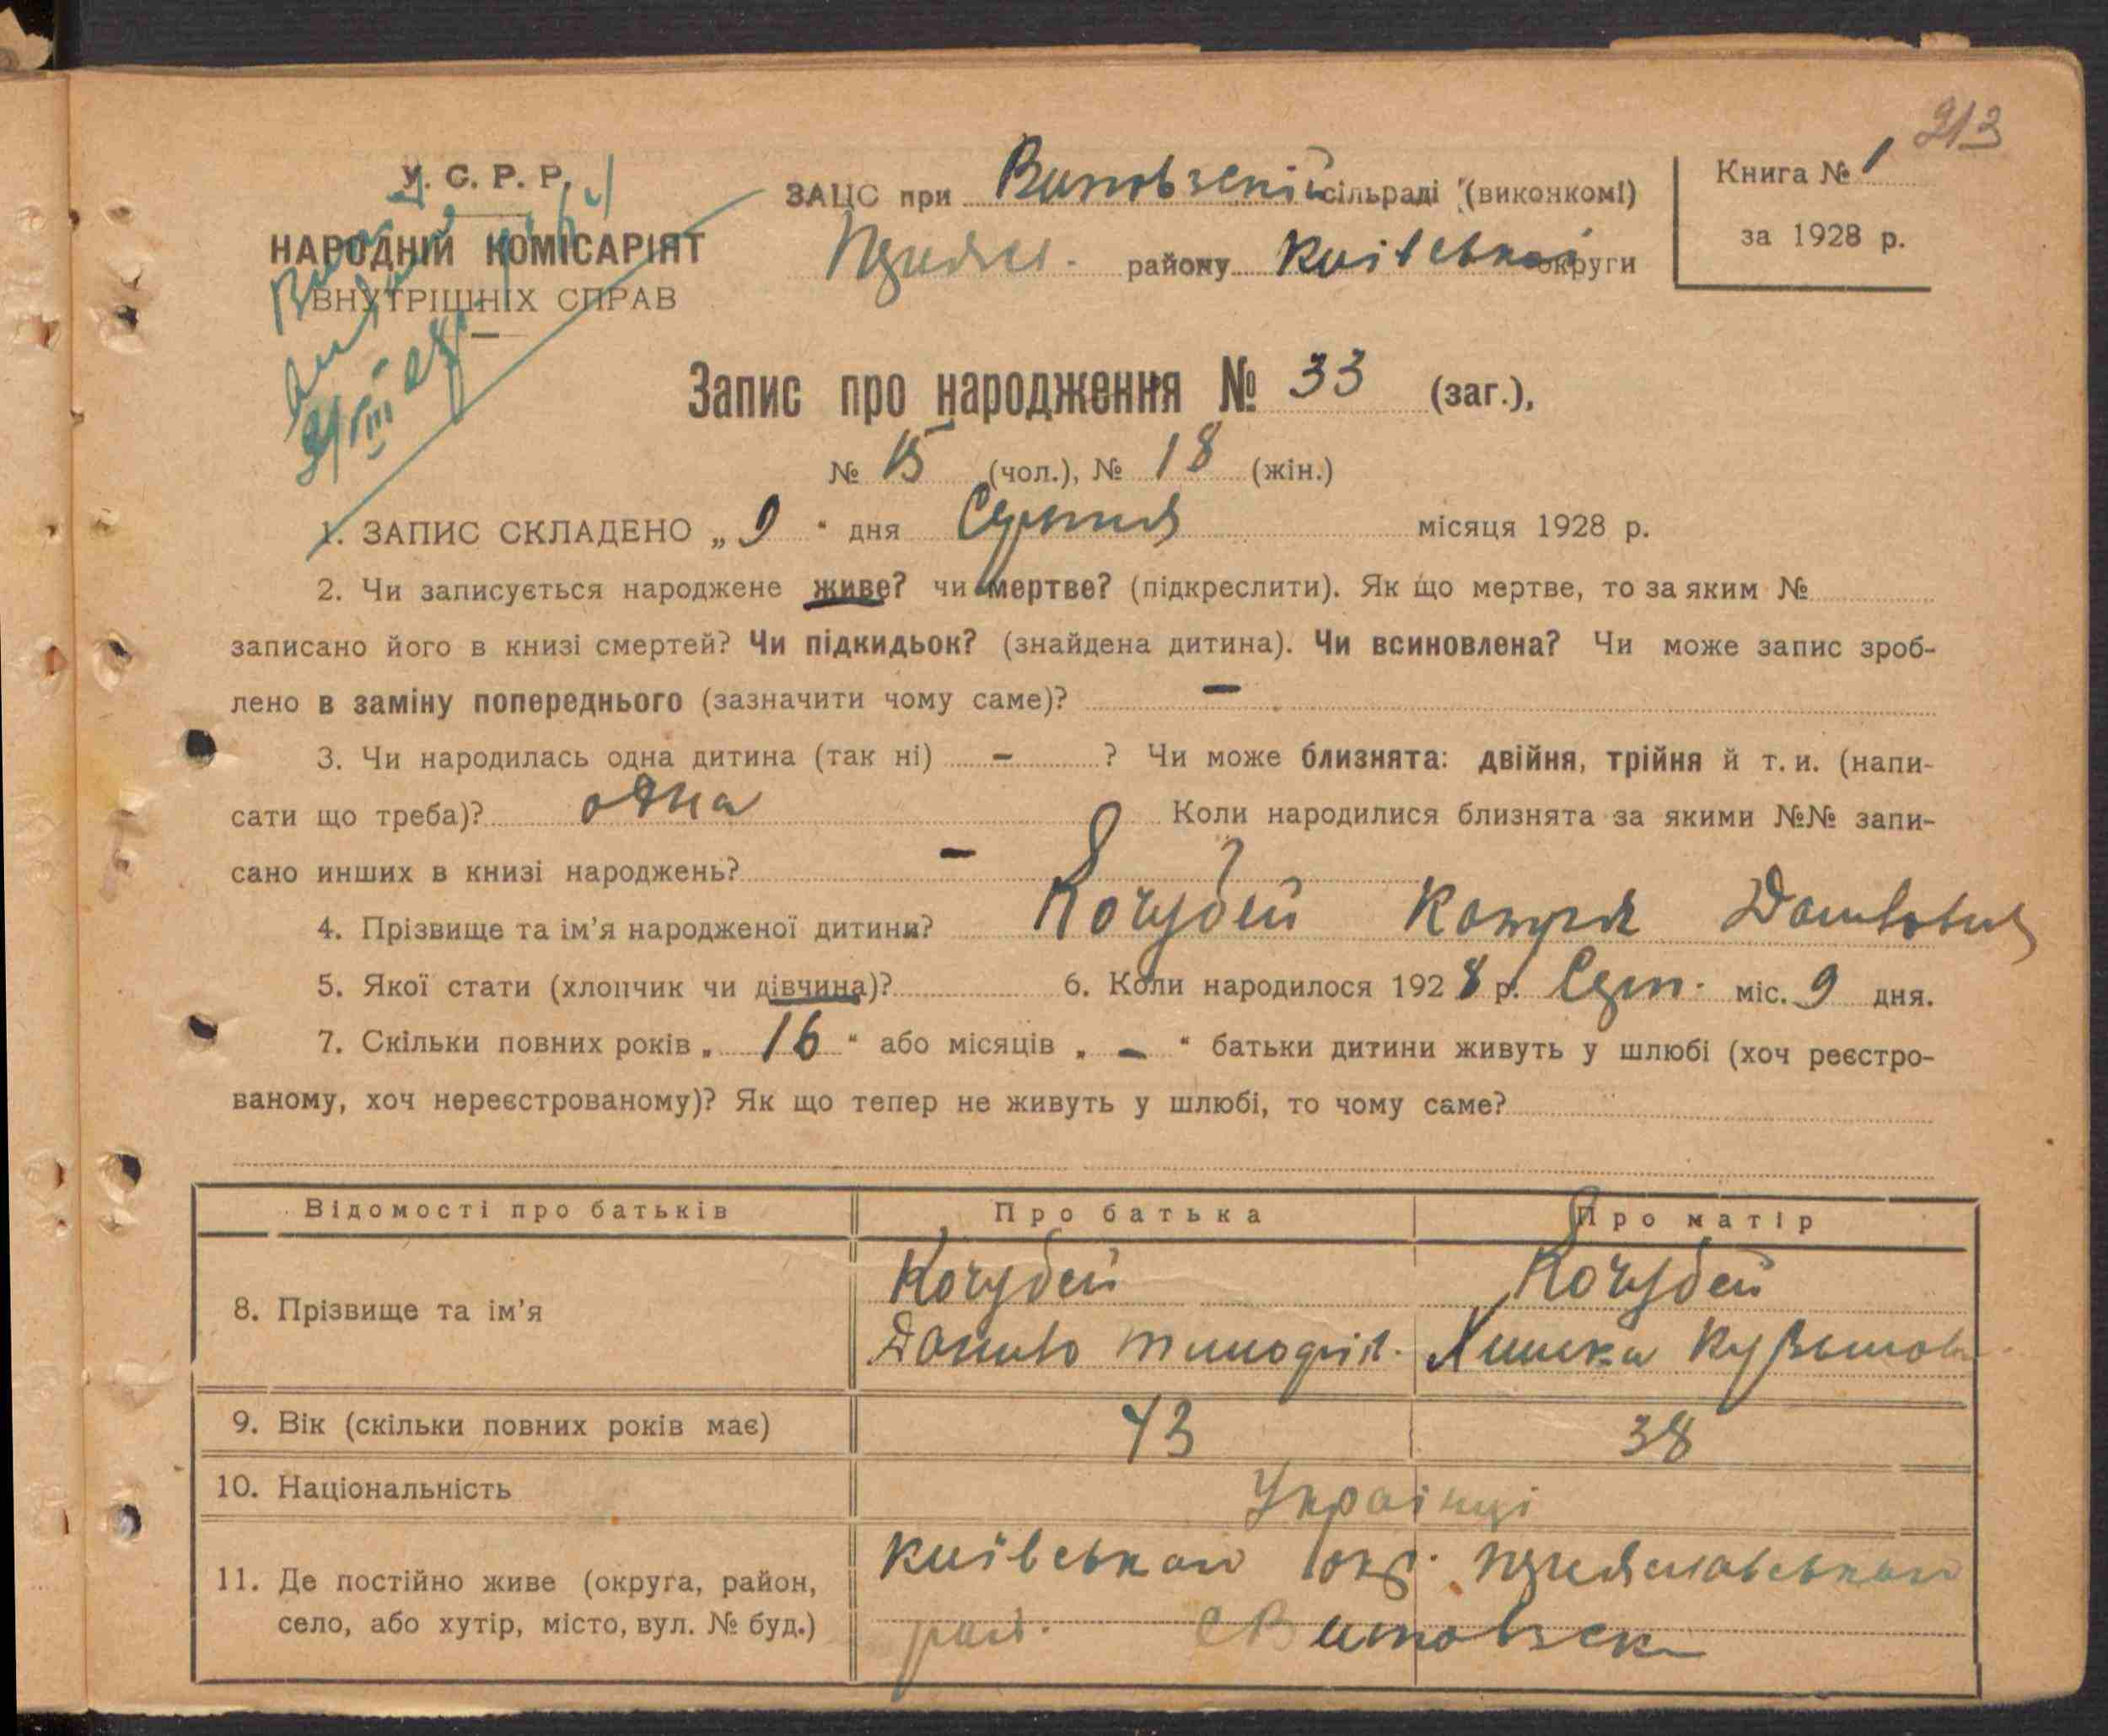 213
У. С. Р. Р.
НАРОДНІЙ КОМІСАРІЯТ
ВНУТРІШНІХ СПРАВ
ЗАЦС при сільраді (виконкомі)
району Київської округи
Книга № 1
за 1928 р.
Запис про народження № 33 (заг.),
№ 15 (чол.), № 18 (жін.)
1. ЗАПИС СКЛАДЕНО „ 9 “ дня Серпня місяця 1928 р.
2. Чи записується народжене живе? чи мертве? (підкреслити). Як що мертве, то за яким №
записано його в книзі смертей? Чи підкидьок? (знайдена дитина). Чи всиновлена? Чи може запис зроб-
лено в заміну попереднього (зазначити чому саме)? —
3. Чи народилась одна дитина (так ні) — ? Чи може близнята: двійня, трійня й т. и. (напи-
сати що треба)? одна Коли народилися близнята за якими №№ запи-
сано инших в книзі народжень? —
4. Прізвище та ім’я народженої дитини? Кочубей Катря Данилівна
5. Якої стати (хлопчик чи дівчина)? 6. Коли народилося 1928 р. Серп. міс. 9 дня.
7. Скільки повних років „ 16 “ або місяців „ — “ батьки дитини живуть у шлюбі (хоч реєстро-
ваному, хоч нереєстрованому)? Як що тепер не живуть у шлюбі, то чому саме?
Відомості про батьків Про батька Про матір
8. Прізвище та ім’я Кочубей Кочубей
Данило
9. Вік (скільки повних років має) 43 38
10. Національність Українці
11. Де постійно живе (округа, район,
село, або хутір, місто, вул. № буд.)
Київської окр. Переяславської
рай.